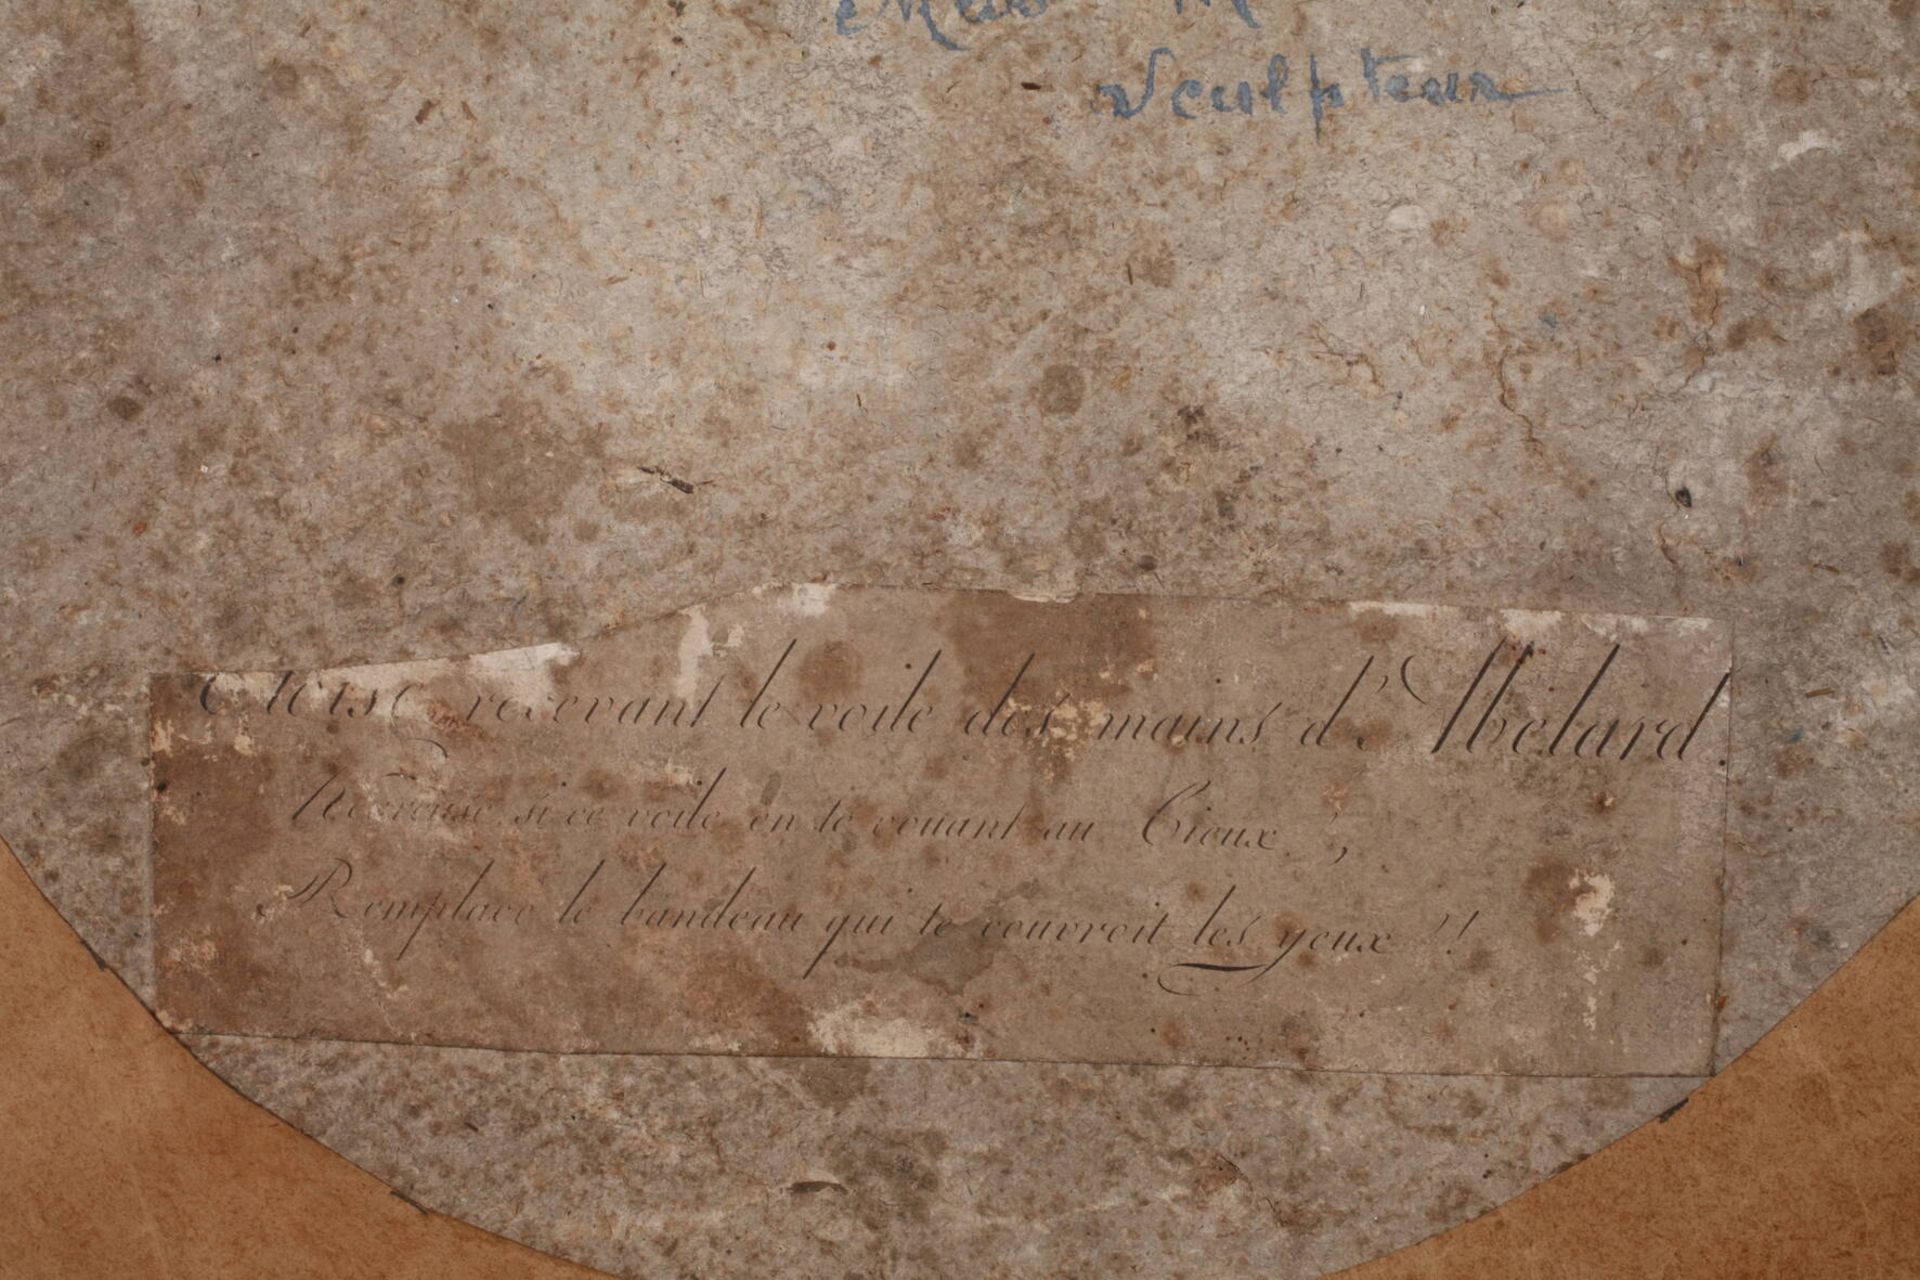 Sculpteur
Eloise recevant le voile des mains d'Abelard.
Heureuse si ce voile en te vouant au Cieux,
Remplace le bandeau qui te couvroit les yeux !!